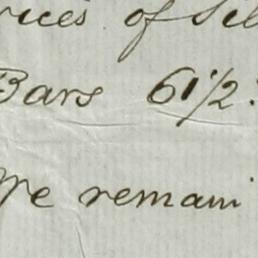 rices of Sil
Bars 61 1/2
We remain